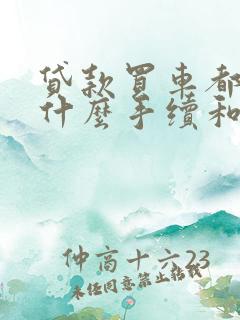 貸款買車都
什麼手續和
仲高十六23
未经同意禁止转载